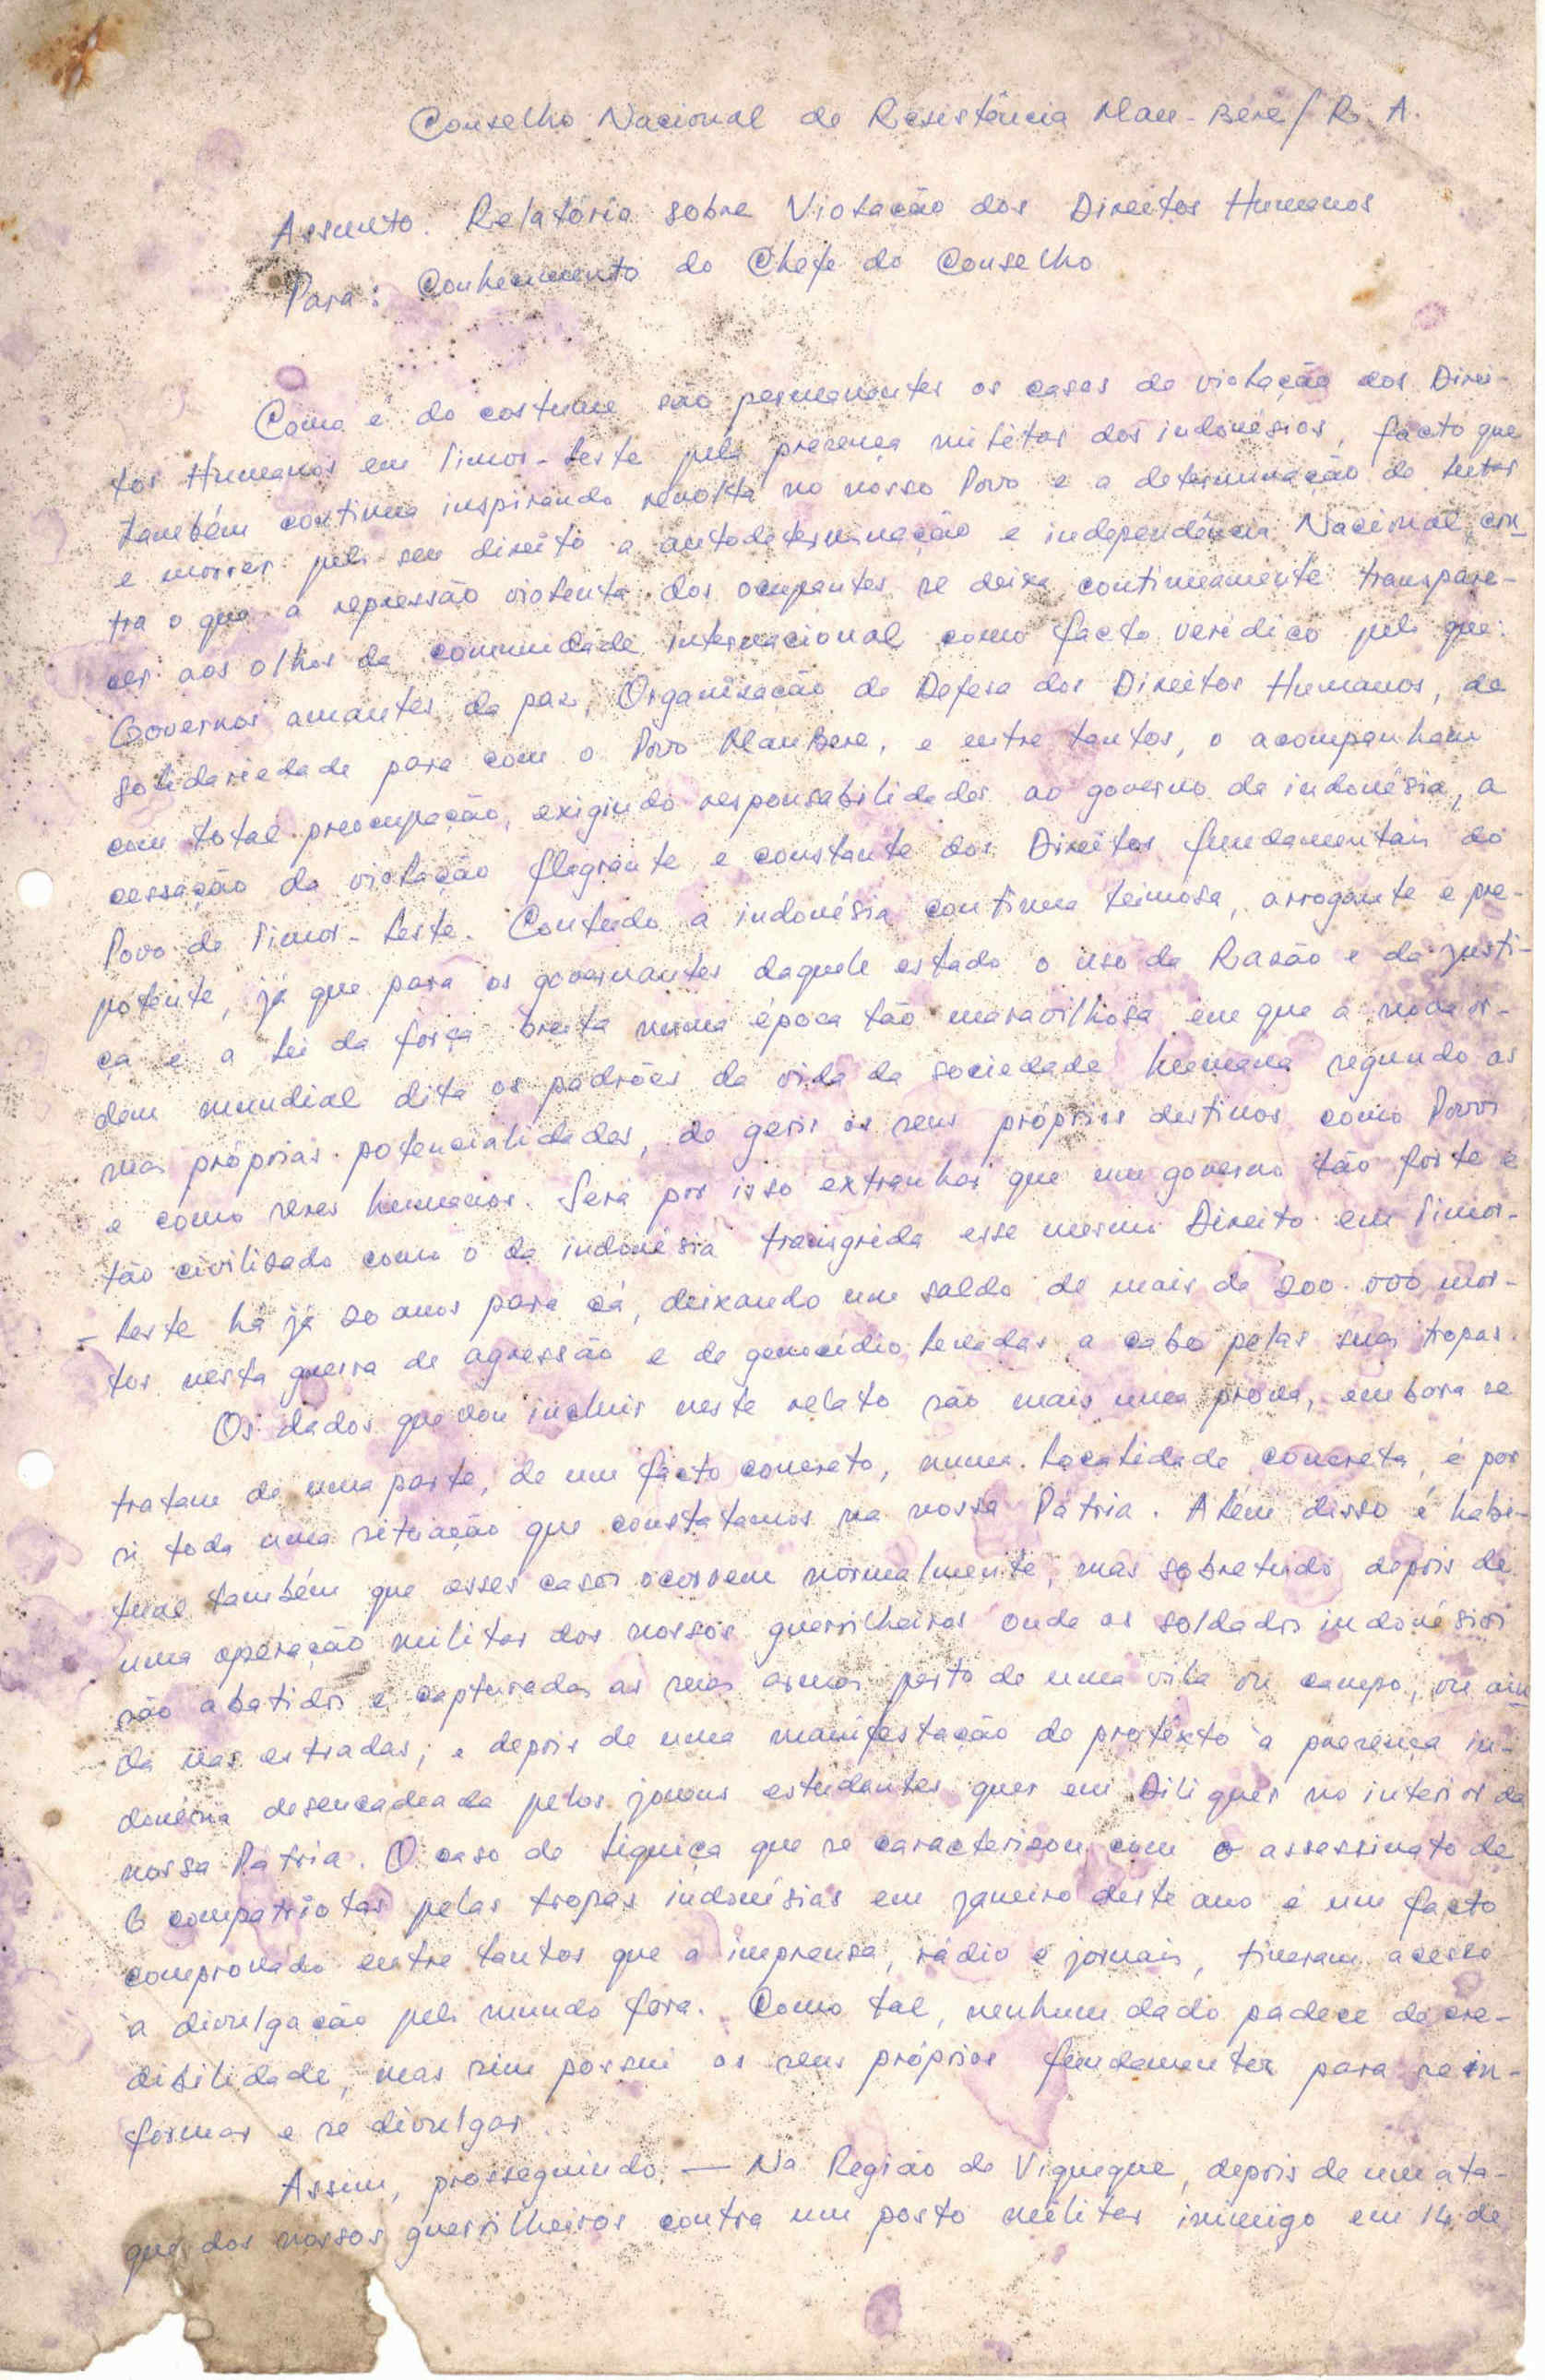 Conselho Nacional de Resistência Mau-Bere / R. A.
Assunto. Relatório sobre Violação dos Direitos Humanos
Para: Conhecimento do Chefe do Conselho
Como é do costume são permanentes os casos de violação dos Direi-
tos Humanos em Timor-Leste pela presença militar dos indonésios, facto que
também continua inspirando revolta no nosso Povo e a determinação de lutar
e morrer pelo seu direito a autodeterminação e independência Nacional con-
tra o que a repressão violenta dos ocupantes se deixa continuamente transpare-
cer aos olhos da comunidade internacional como facto verídico pelo que:
Governos amantes da paz, Organização de Defesa dos Direitos Humanos, de
solidariedade para com o Povo MauBere, e entre tantos, o acompanham
com total preocupação, exigindo responsabilidades ao governo da indonésia, a
cessação da violação flagrante e constante dos Direitos fundamentais do
Povo de Timor-Leste. Contudo a indonésia continua teimosa, arrogante e pre-
potente, já que para os governantes daquele estado o uso da Razão e da justi-
ça é a lei da força bruta numa época tão maravilhosa em que a nova or-
dem mundial dita os padrões da vida da sociedade humana segundo as
suas próprias potencialidades, de gerir os seus próprios destinos como Povos
e como seres humanos. Será por isso extranhar que um governo tão forte e
tão civilizado como o da indonésia transgrida esse mesmo Direito em Timor-
-Leste há já 20 anos para cá, deixando um saldo de mais de 200.000 mor-
tos nesta guerra de agressão e de genocídio levadas a cabo pelas suas tropas.
Os dados que vou incluir neste relato são mais uma prova, embora se
tratam de uma parte, de um facto concreto, numa localidade concreta, é por
si toda uma situação que constatamos na nossa Pátria. Além disso é habi-
tual também que esses casos ocorrem normalmente, mas sobretudo depois de
uma operação militar dos nossos guerrilheiros onde os soldados indonésios
são abatidos e capturadas as suas armas perto de uma vila ou campo, ou ain-
da nas estradas; e depois de uma manifestação de protêxto à presença in-
donésia desencadeada pelos jovens estudantes quer em Dili quer no interior da
nossa Pátria. O caso de Liquiça que se caracterizou com o assassinato de
6 compatriotas pelas tropas indonésias em janeiro deste ano é um facto
comprovado entre tantos que a imprensa, rádio e jornais, tiveram acesso
à divulgação pelo mundo fora. Como tal, nenhum dado padece de cre-
dibilidade, mas sim possui os seus próprios fundamentos para se in-
formar e se divulgar.
Assim, prosseguindo, — Na Região de Viqueque, depois de um ata-
que dos nossos guerrilheiros contra um posto militar inimigo em 14 de